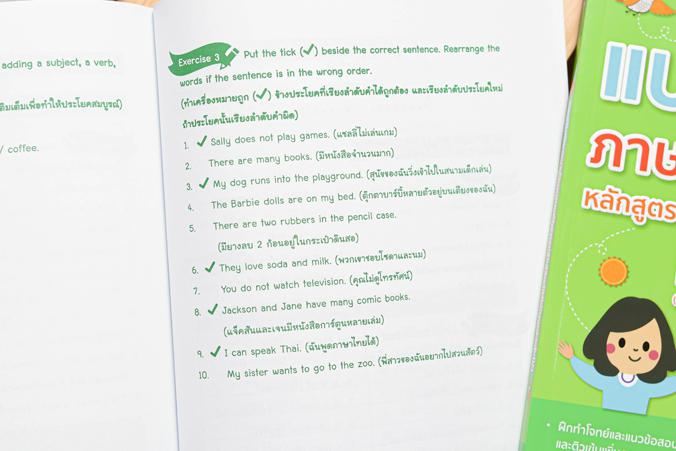 adding a subject, a verb,
ติมเต็มเพื่อทำให้ประโยคสมบูรณ์)
/ coffee.
Exercise 3 Put the tick (✓) beside the correct sentence. Rearrange the
words if the sentence is in the wrong order.
(ทำเครื่องหมายถูก (✓) ข้างประโยคที่เรียงลำดับคำได้ถูกต้อง และเรียงลำดับประโยคใหม่
ถ้าประโยคนั้นเรียงลำดับคำผิด)
1. ✓ Sally does not play games. (แซลลี่ไม่เล่นเกม)
2. There are many books. (มีหนังสือจำนวนมาก)
3. ✓ My dog runs into the playground. (สุนัขของฉันวิ่งเข้าไปในสนามเด็กเล่น)
4. The Barbie dolls are on my bed. (ตุ๊กตาบาร์บี้หลายตัวอยู่บนเตียงของฉัน)
5. There are two rubbers in the pencil case.
(มียางลบ 2 ก้อนอยู่ในกระเป๋าดินสอ)
6. ✓ They love soda and milk. (พวกเขาชอบโซดาและนม)
7. You do not watch television. (คุณไม่ดูโทรทัศน์)
8. ✓ Jackson and Jane have many comic books.
(แจ็คสันและเจนมีหนังสือการ์ตูนหลายเล่ม)
9. ✓ I can speak Thai. (ฉันพูดภาษาไทยได้)
10. My sister wants to go to the zoo. (พี่สาวของฉันอยากไปสวนสัตว์)
แบ
ภาษ
หลักสูตร
• ฝึกทำโจทย์และแนวข้อสอบ